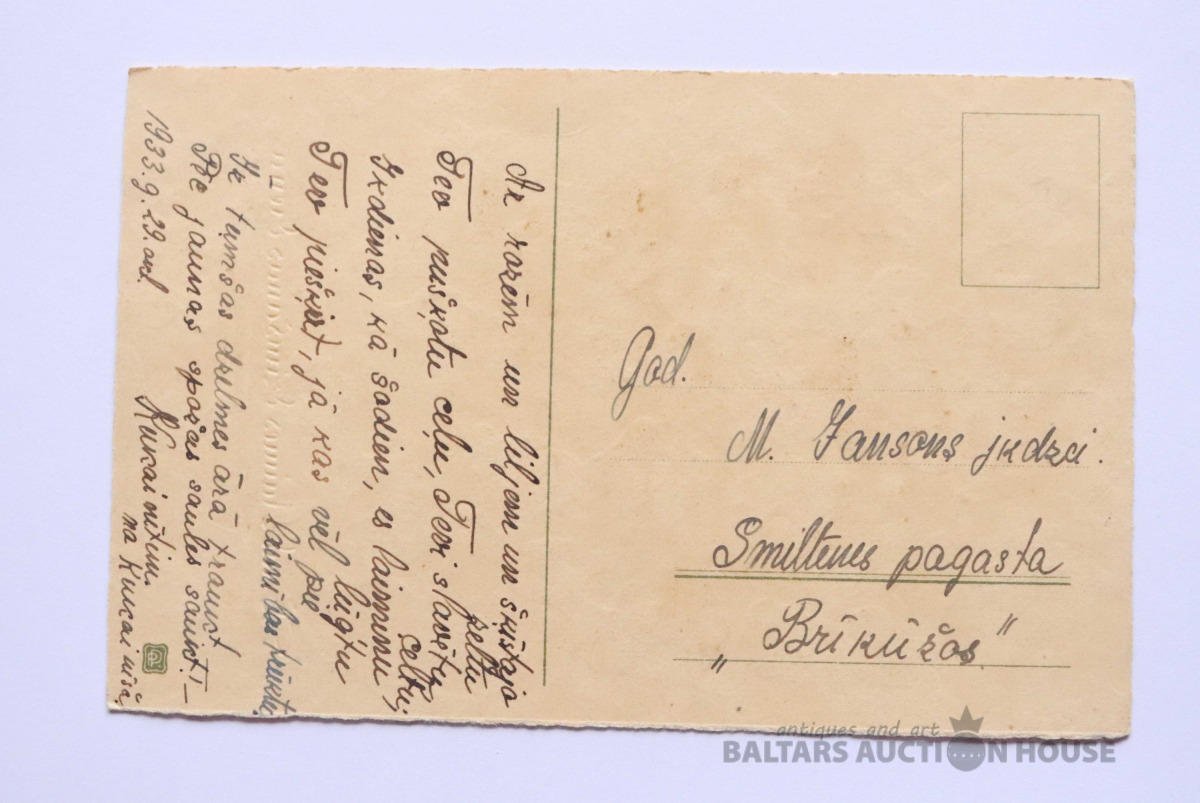 Ar rozēm un liljem un škistajo
pelu
Tev puškotu ceļu, Tevi slavētu
celtu,
Ikdienas, kā šodien, es laimimu
lūgtu
Tev piešķirt, jā kas vēl pie
laimības trūktu.
Iz tumšas dzelmes ārā traukt
Pēc jaunas spožas saules saukt! –
1933.g. 29. okt.
na
God.
M. Jansons jkdzei.
Smiltenes pagasta
„Brīkūžos"
antiques and art
BALTARS AUCTION HOUSE